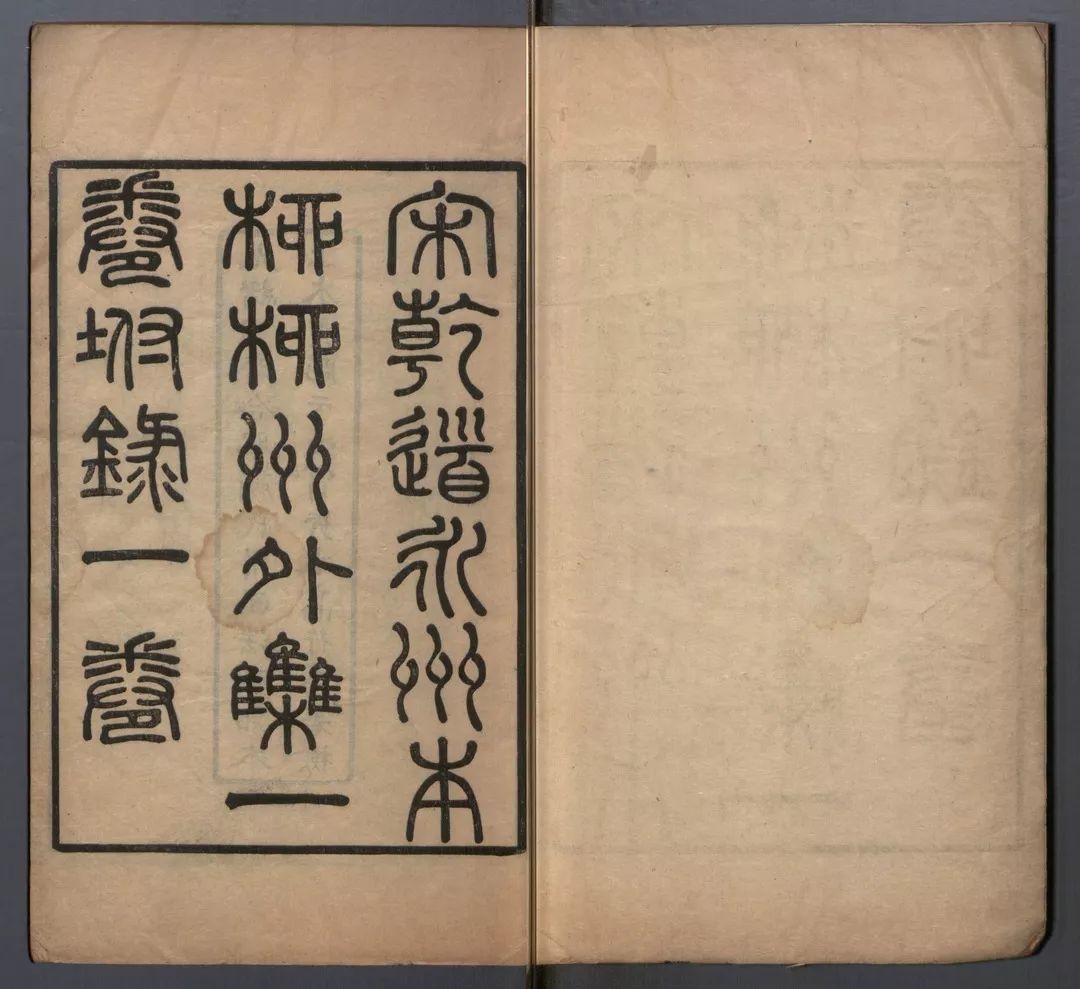 宋乾道永州本
柳柳州外集一
卷坿錄一卷